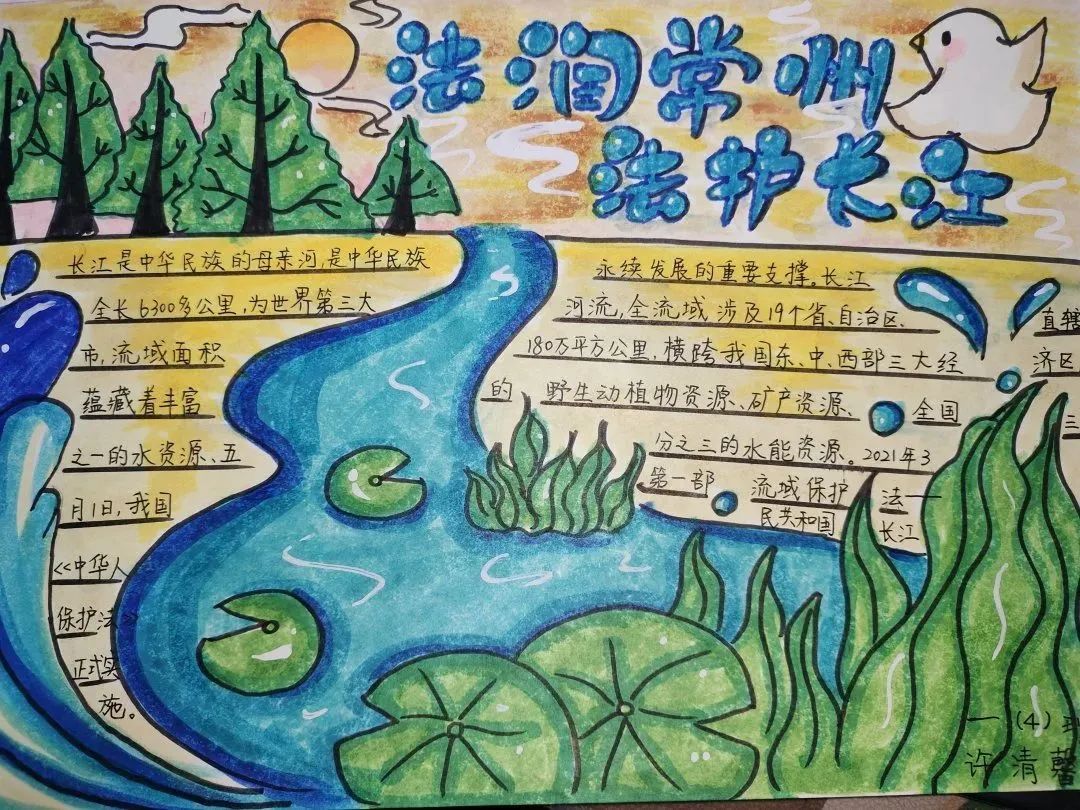 法润常州
法护长江
长江是中华民族的母亲河,是中华民族 永续发展的重要支撑。长江
全长6300多公里,为世界第三大 河流,全流域涉及19个省、自治区、 直辖
市,流域面积 180万平方公里,横跨我国东、中、西部三大经 济区
蕴藏着丰富 的 野生动植物资源、矿产资源、 全国 三
之一的水资源、五 分之三的水能资源。2021年3
月1日,我国 第一部 流域保护 法——
《中华人 民共和国 长江
保护法》
正式实
施。
一(4)
许清馨